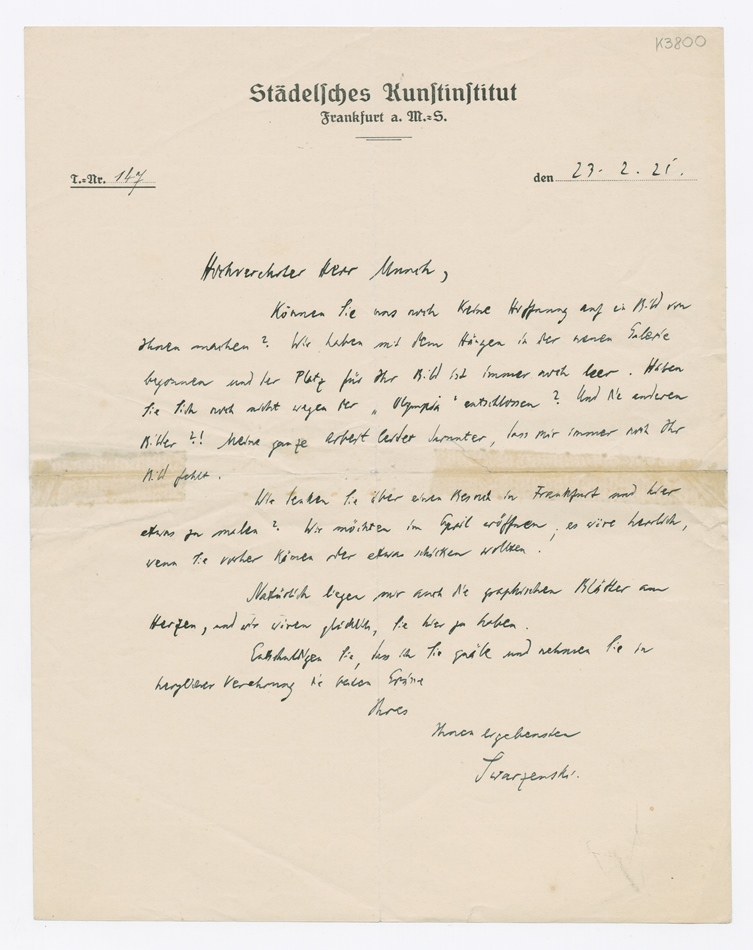 K3800
Städelsches Kunstinstitut
Frankfurt a. M.-S.
T.-Nr. 147
den 23. 2. 21.
Hochverehrter Herr Munch,
Können Sie uns noch keine Hoffnung auf ein Bild von
Ihnen machen? Wir haben mit dem Hängen in der neuen Galerie
begonnen und der Platz für Ihr Bild ist immer noch leer. Haben
Sie Sich noch nicht wegen der „Olympia“ entschlossen? Und die anderen
Bilder?! Meine ganze Arbeit leidet darunter, dass mir immer noch Ihr
Bild fehlt.
Wie denken Sie über einen Besuch in Frankfurt und hier
etwas zu malen? Wir möchten im April eröffnen, es wäre herrlich,
wenn Sie vorher kämen oder etwas schicken wollten.
Natürlich liegen mir auch die graphischen Blätter am
Herzen, und wir wären glücklich, sie hier zu haben.
Entschuldigen Sie, dass ich Sie quäle und nehmen Sie in
herzlicher Verehrung die besten Grüsse
Ihres
Ihnen ergebensten
Swarzenski.